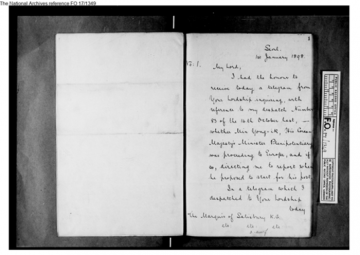 The National Archives reference FO 17/1349
1
Seoul.
10 January 1898.
No. 1.
My Lord,
I had the honour to
receive today a telegram from
Your Lordship enquiring, with
reference to my despatch Number
83 of the 16th October last, —
whether Min Yong-ik, His Corean
Majesty's Minister Plenipotentiary
was proceeding to Europe, and if
so, directing me to report when
he proposed to start for his post.
In a telegram which I
despatched to Your Lordship
today
The Marquis of Salisbury K.G.
&c &c &c
F.O.